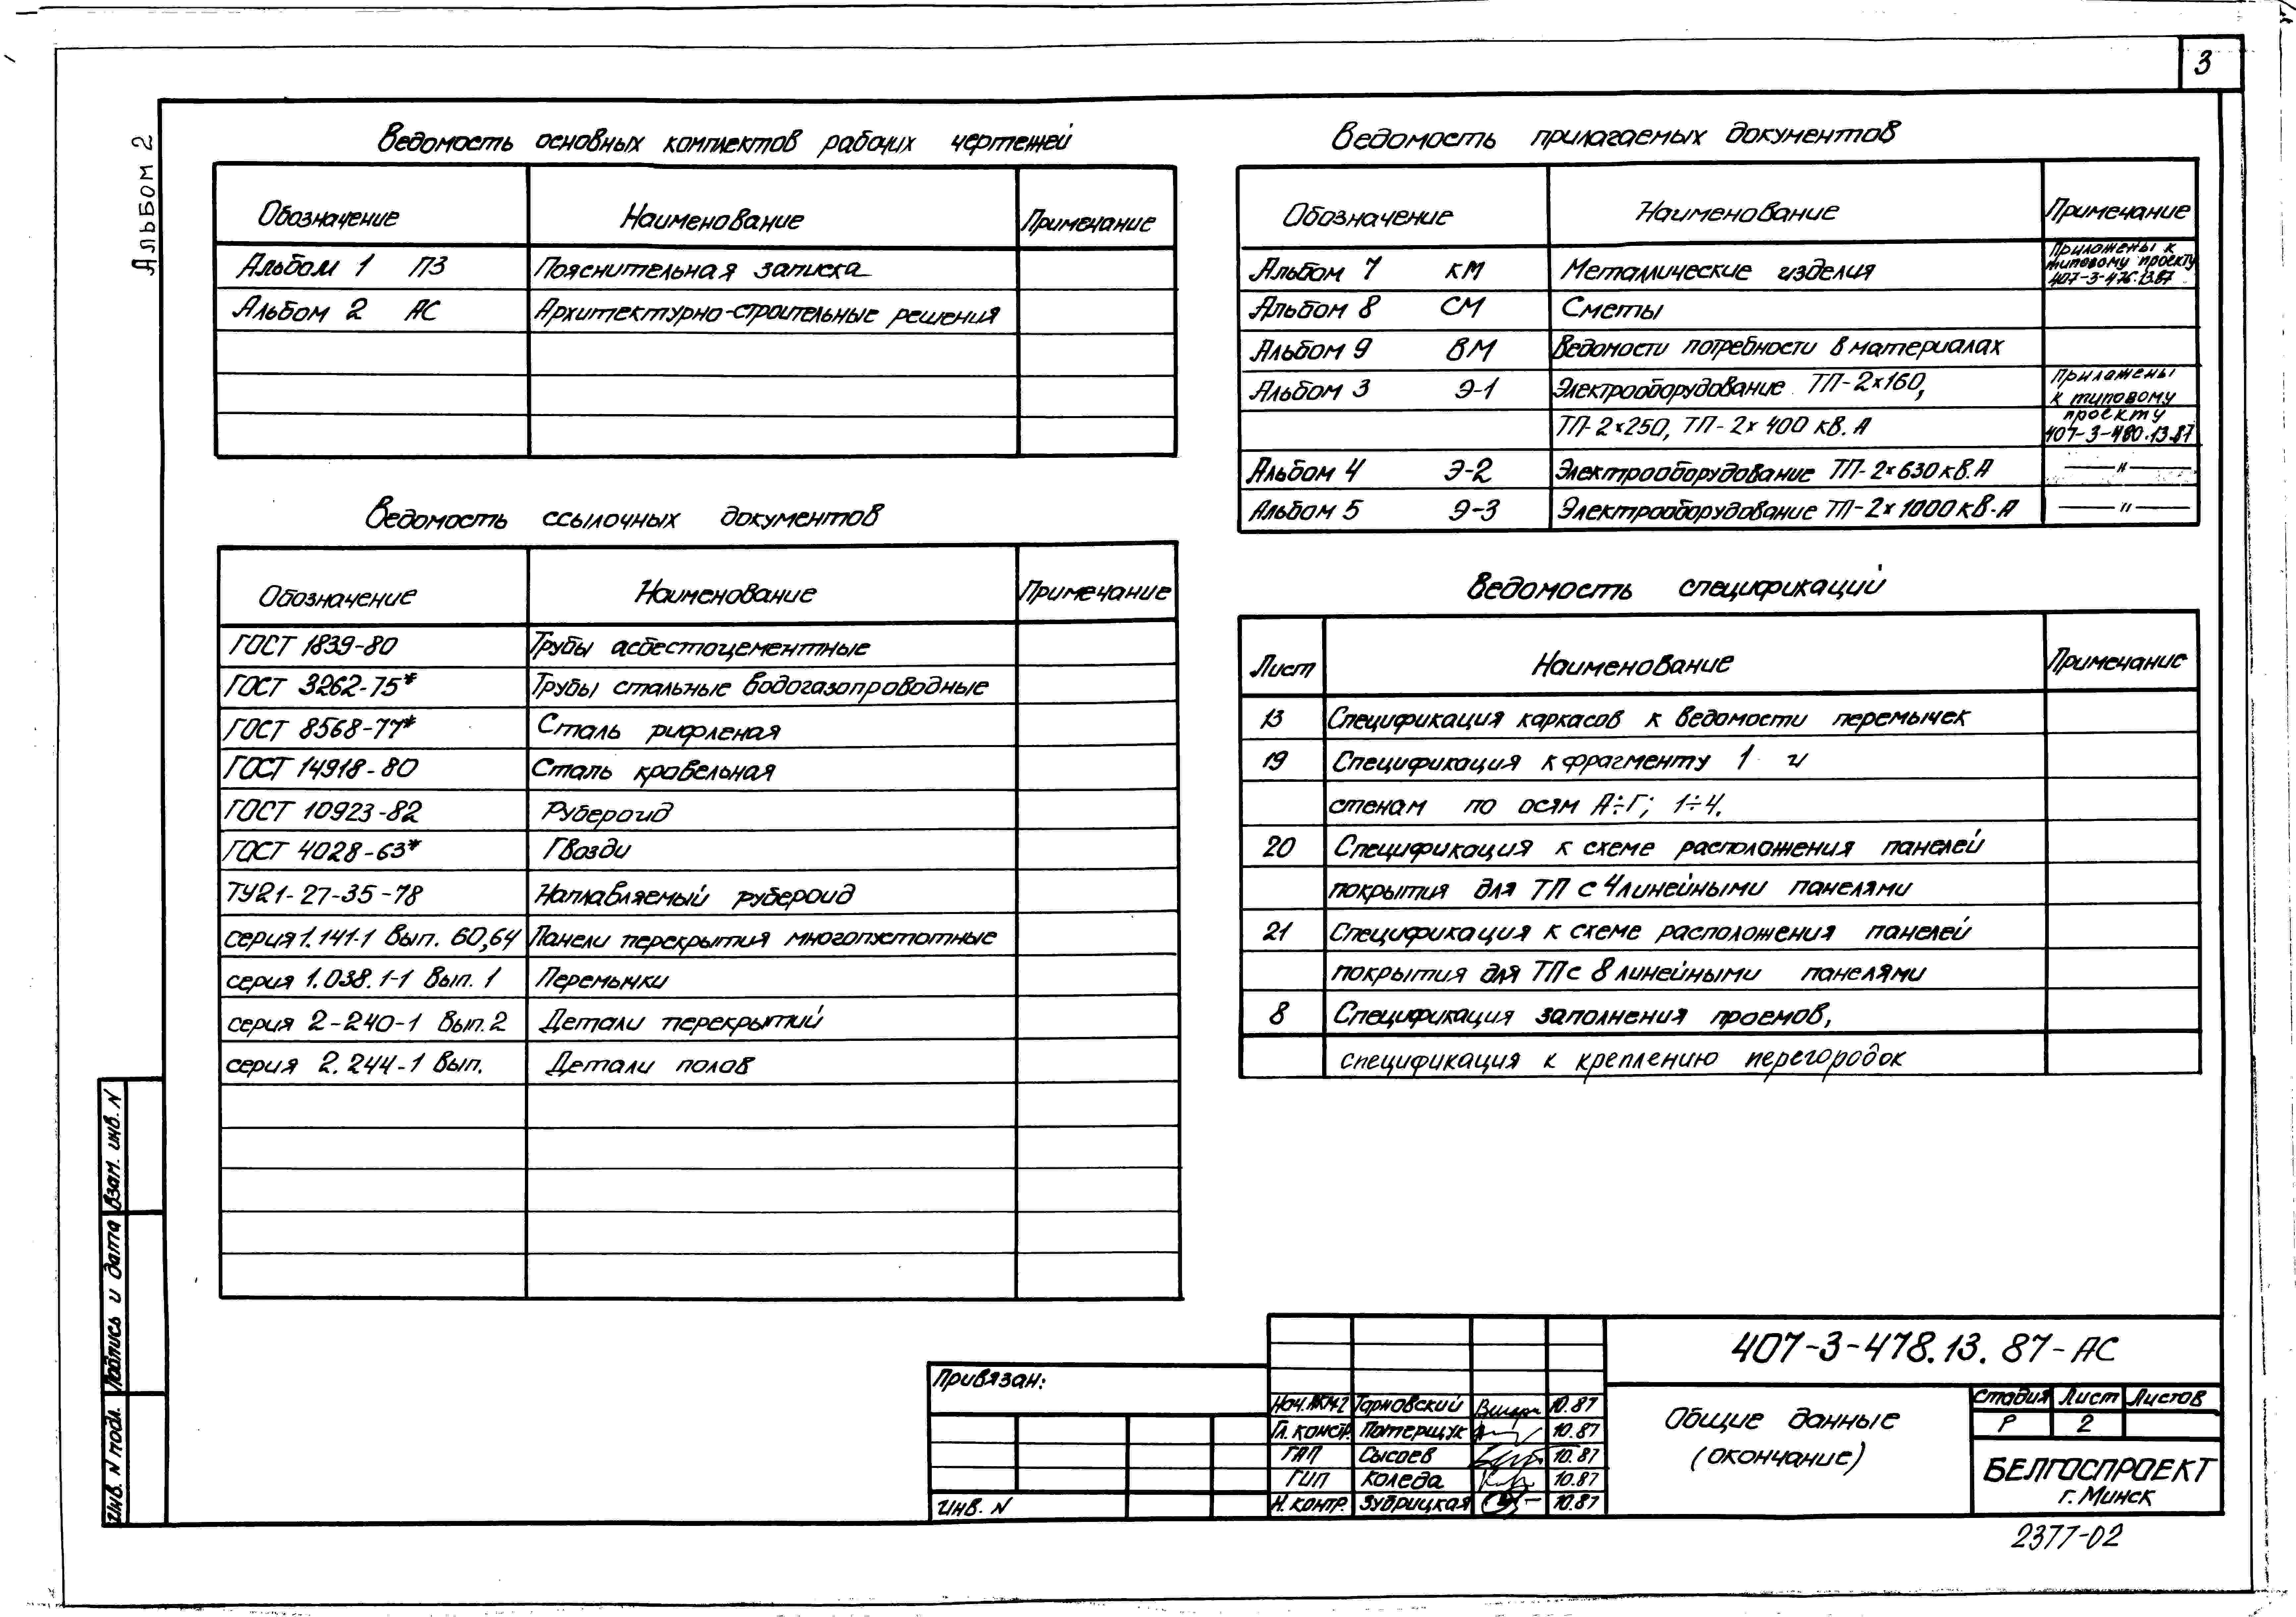 3
Альбом 2
Ведомость основных комплектов рабочих чертежей
Обозначение Наименование Примечание
Альбом 1 ПЗ Пояснительная записка
Альбом 2 АС Архитектурно-строительные решения
Ведомость ссылочных документов
Обозначение Наименование Примечание
ГОСТ 1839-80 Трубы асбестоцементные
ГОСТ 3262-75* Трубы стальные водогазопроводные
ГОСТ 8568-77* Сталь рифленая
ГОСТ 14918-80 Сталь кровельная
ГОСТ 10923-82 Рубероид
ГОСТ 4028-63* Гвозди
ТУ21-27-35-78 Наплавляемый рубероид
серия 1.141-1 Вып. 60,64 Панели перекрытия многопустотные
серия 1.038.1-1 Вып. 1 Перемычки
серия 2-240-1 Вып.2 Детали перекрытий
серия 2.244-1 Вып. Детали полов
Ведомость прилагаемых документов
Обозначение Наименование Примечание
Альбом 7 КМ Металлические изделия
Приложены к
типовому проекту
407-3-476.13.87
Альбом 8 СМ Сметы
Альбом 9 ВМ Ведомости потребности в материалах
Альбом 3 Э-1 Электрооборудование ТП-2×160,
ТП-2×250, ТП-2×400 кВ.А
Приложены
к типовому
проекту
407-3-480.13.87
Альбом 4 Э-2 Электрооборудование ТП-2×630кВ.А —"—
Альбом 5 Э-3 Электрооборудование ТП-2×1000кВ-А —"—
Ведомость спецификаций
Лист Наименование Примечание
13 Спецификация каркасов к ведомости перемычек
19 Спецификация к фрагменту 1 и
стенам по осям А÷Г; 1÷4.
20 Спецификация к схеме расположения панелей
покрытия для ТП с 4линейными панелями
21 Спецификация к схеме расположения панелей
покрытия для ТП с 8 линейными панелями
8 Спецификация заполнения проемов,
спецификация к креплению перегородок
Взам. инв. N
Подпись и дата
Инв. N подл.
Привязан:
Инв. N
Тарновский 10.87
Гл. констр. Потерщук 10.87
ГАП Сысоев 10.87
ГИП Коледа 10.87
Н. контр. Зубрицкая 10.87
407-3-478.13.87-АС
Общие данные
(окончание)
Стадия Лист Листов
Р 2
БЕЛГОСПРОЕКТ
г. Минск
2377-02